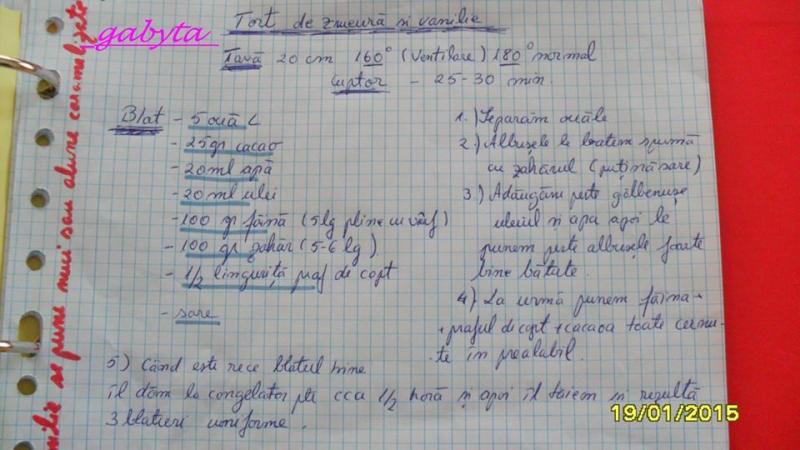 Tort de zmeură și vanilie
gabyta
Tavă 20 cm 160° (Ventilare) 180° normal
Cuptor - 25-30 min.
Blat - 5 ouă L
- 25gr cacao
- 20ml apă
- 20ml ulei
- 100 gr făină (5 lg pline cu vârf)
- 100 gr zahăr (5-6 lg)
- 1/2 linguriță praf de copt
- sare
1.) Separăm ouăle
2.) Albușele le batem spumă
cu zahărul (puțină sare)
3.) Adăugăm peste gălbenușe
uleiul și apa apoi le
punem peste albușele foarte
bine bătute.
4) La urmă punem făina +
+ praful de copt + cacaoa toate cernu-
te în prealabil.
5) Când este rece blatul bine
îl dăm la congelator pte cca 1/2 oră și apoi îl tăiem și rezultă
3 blaturi uniforme.
milie se pune nuci sau alune caramelizate
19/01/2015